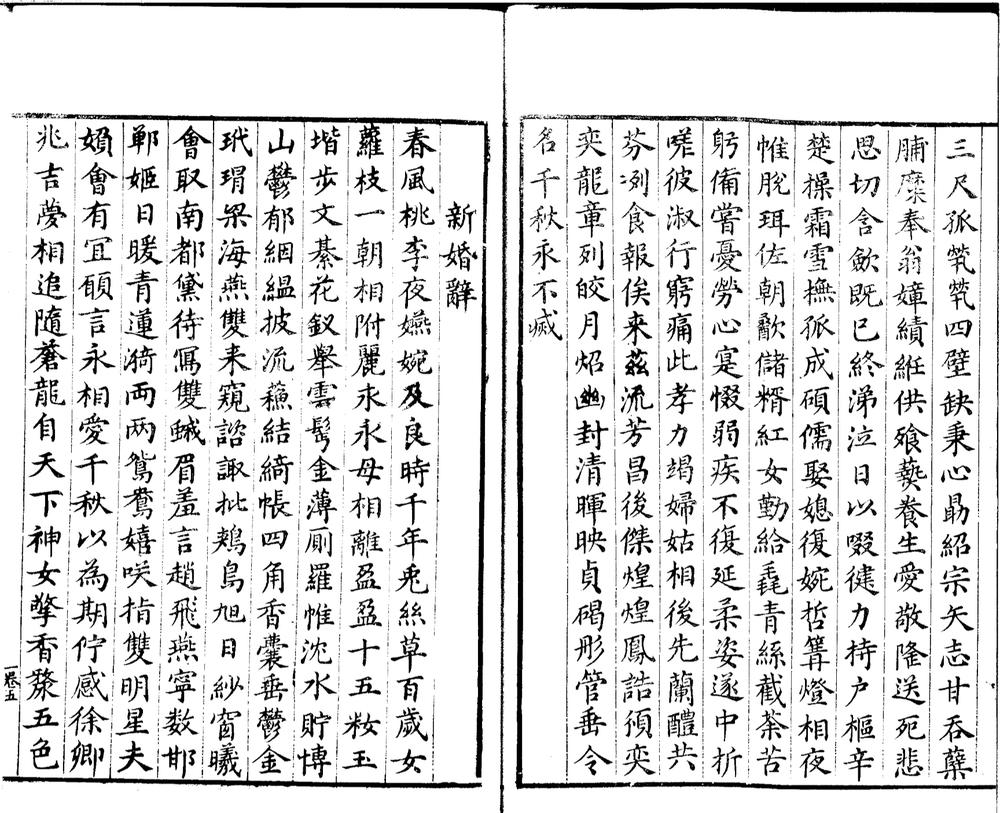 三尺孤煢煢四壁缺秉心勗紹宗矢志甘吞蘖
脯糜奉翁嫜績紝供飱爇養生愛敬隆送死悲
思切含歛既已終涕泣日以啜健力持户樞辛
楚操霜雪撫孤成碩儒娶媳復婉哲篝燈相夜
帷脫珥佐朝歠儲糈紅女勤給毳青絲截荼苦
躬備嘗憂勞心寔惙弱疾不復延柔姿遂中折
嗟彼淑行窮痛此孝力竭婦姑相後先蘭醴共
芬冽食報俟来茲流芳昌後傑煌煌鳳誥湏奕
奕龍章列皎月炤幽封清暉映貞碣彤管垂令
名千秋永不烕
新婚辭
春風桃李夜嬿婉及良時千年兎絲草百歲女
蘿枝一朝相附麗永永母相離盈盈十五籹玉
堦步文綦花釵舉雲髩金薄厠羅帷沈水貯博
山鬱郁絪縕披流蘓結綺帳四角香囊垂鬱金
玳瑁梁海燕雙来窺諮諏批鵊鳥旭日紗窗曦
會取南都黛待冩雙蛾眉羞言趙飛燕寧数邯
鄲姬日暖青蓮漪両両鴛鴦嬉咲指雙明星夫
嬪會有冝願言永相愛千秋以為期佇感徐卿
兆吉夢相追隨蒼龍自天下神女擎香漦五色
卷五